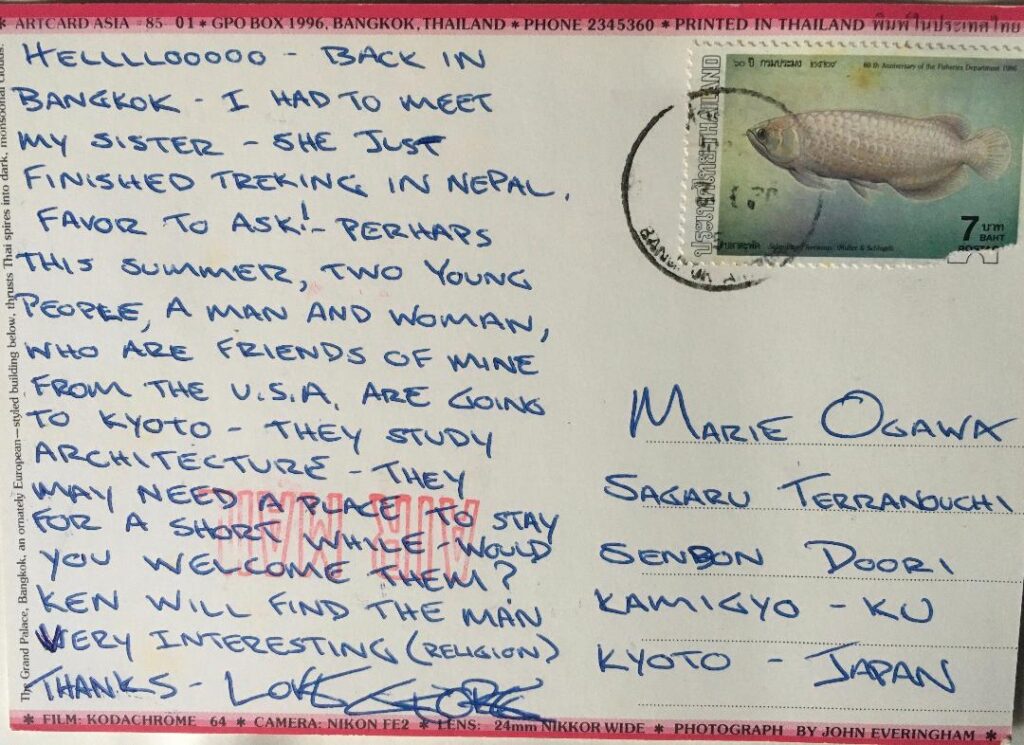 * ARTCARD ASIA #85 01 * GPO BOX 1996, BANGKOK, THAILAND * PHONE 2345360 * PRINTED IN THAILAND พิมพ์ในประเทศไทย
HELLLLOOOOO - BACK IN
BANGKOK - I HAD TO MEET
MY SISTER - SHE JUST
FINISHED TREKING IN NEPAL.
FAVOR TO ASK! - PERHAPS
THIS SUMMER, TWO YOUNG
PEOPLE, A MAN AND WOMAN,
WHO ARE FRIENDS OF MINE
FROM THE U.S.A. ARE GOING
TO KYOTO - THEY STUDY
ARCHITECTURE - THEY
MAY NEED A PLACE TO STAY
FOR A SHORT WHILE - WOULD
YOU WELCOME THEM?
KEN WILL FIND THE MAN
VERY INTERESTING (RELIGION)
THANKS - LOVE GEORGE
AIR MAIL
The Grand Palace, Bangkok, an ornately European—styled building below, thrusts Thai spires into dark, monsoonal clouds.
๖๐ ปี กรมประมง ๒๕๒๙
60th Anniversary of the Fisheries Department 1986
ประเทศไทย-THAILAND
7 บาท
BAHT
POSTAG
BANGKOK
MARIE OGAWA
SAGARU TERRANOUCHI
SENBON DOORI
KAMIGYO - KU
KYOTO - JAPAN
* FILM: KODACHROME 64 * CAMERA: NIKON FE2 * LENS: 24mm NIKKOR WIDE * PHOTOGRAPH BY JOHN EVERINGHAM *